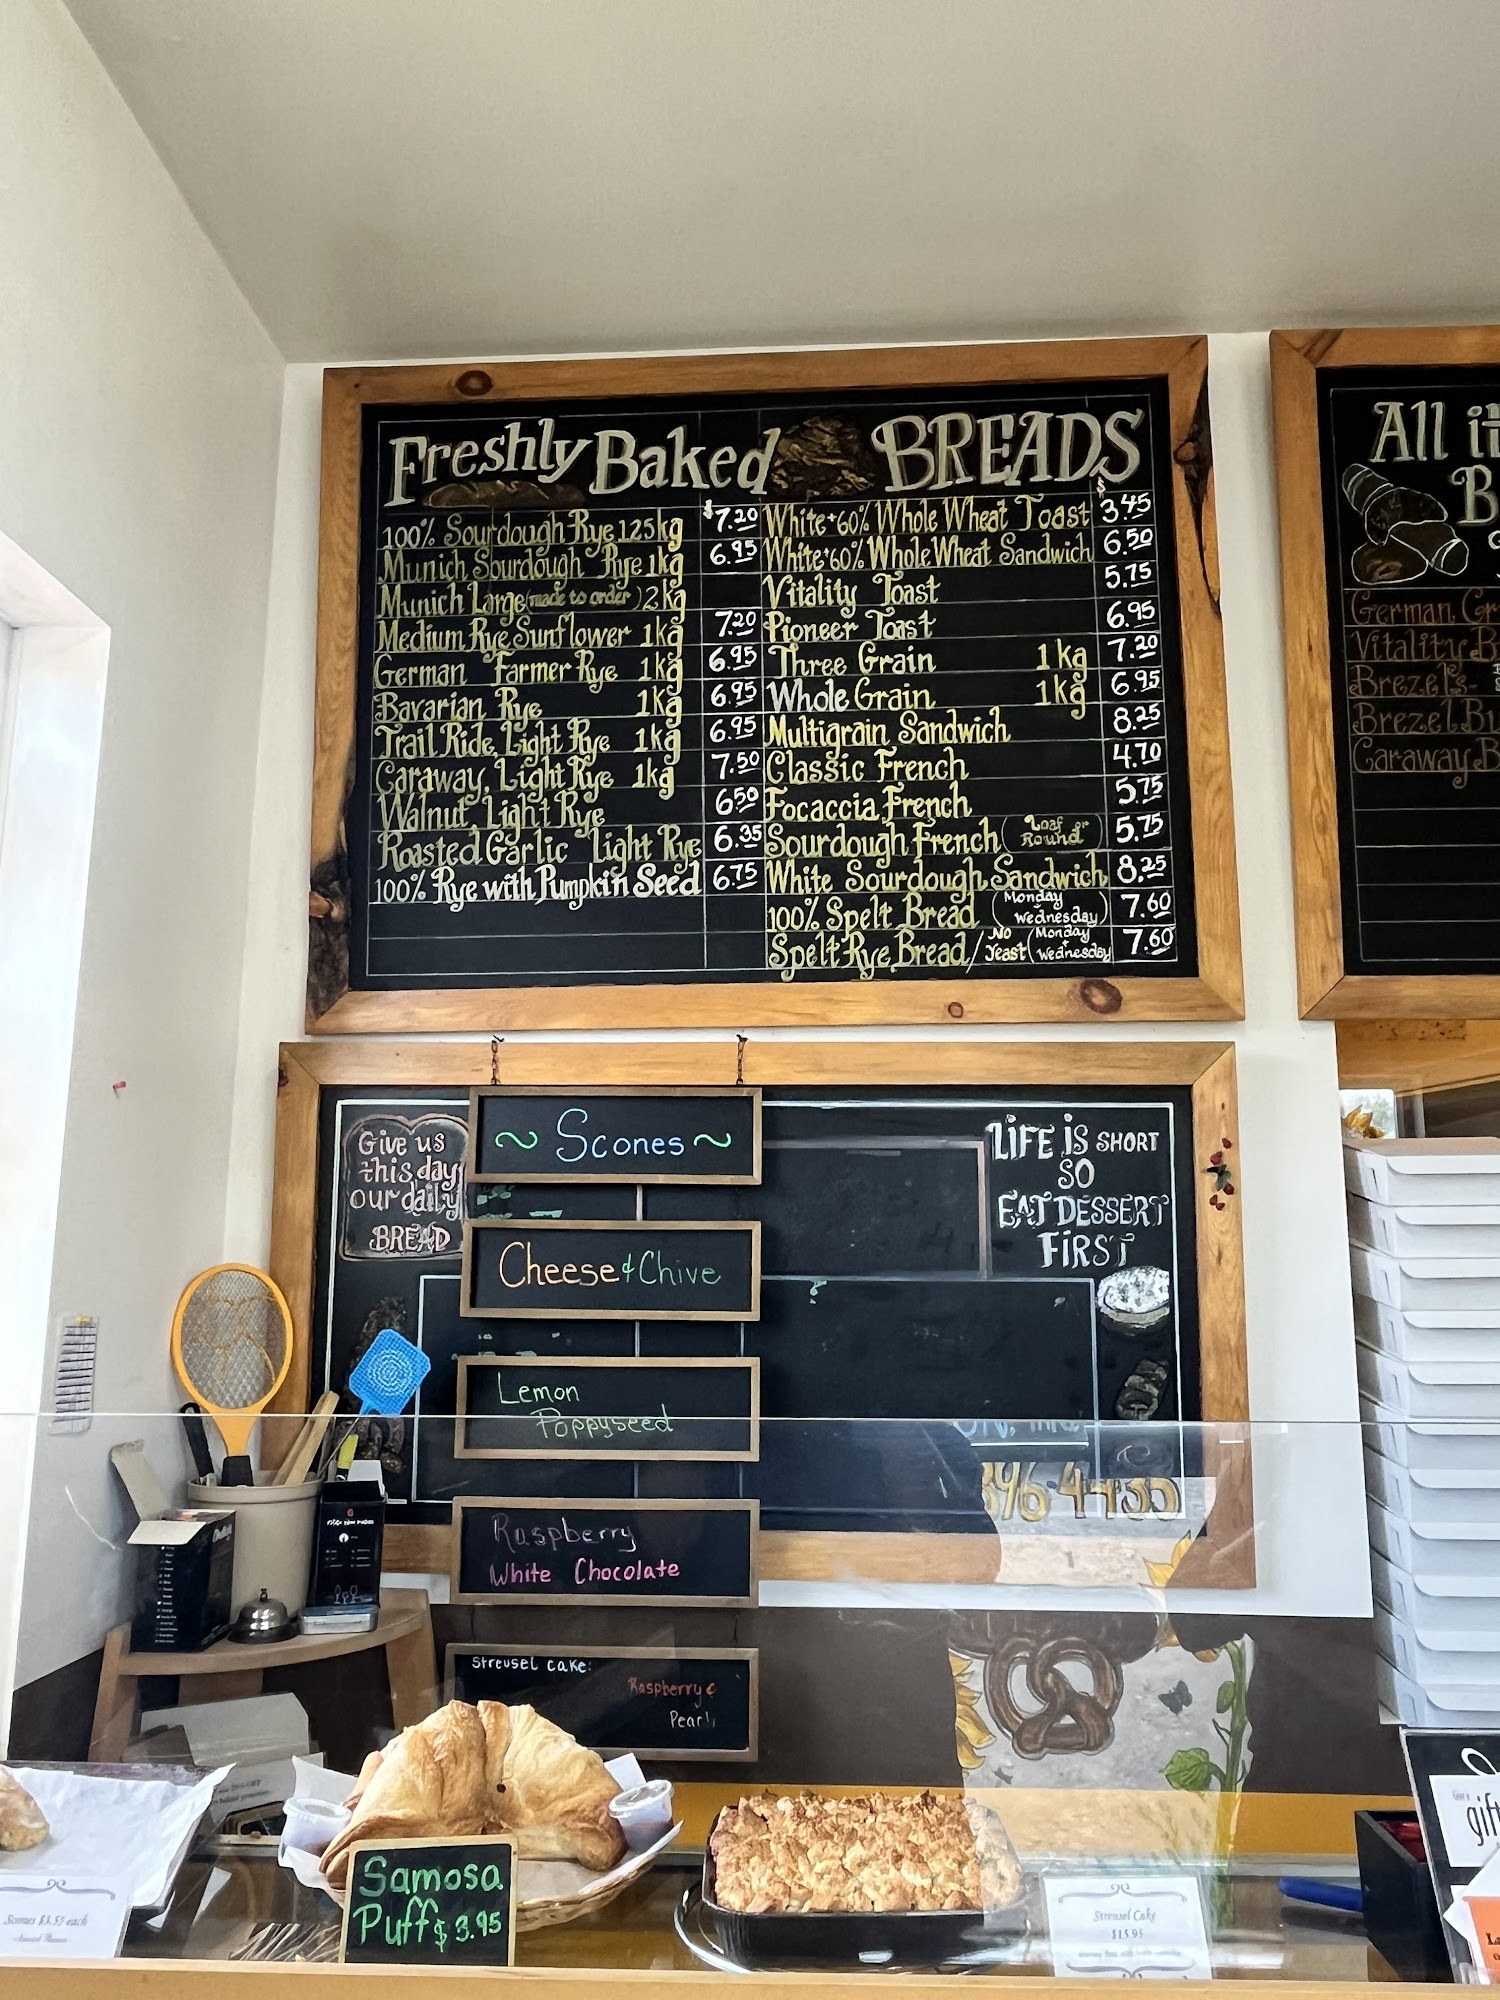 Freshly Baked BREADS
100% Sourdough Rye 1.25kg $7.20
Munich Sourdough Rye 1kg 6.95
Munich Large (made to order) 2kg
Medium Rye Sunflower 1kg 7.20
German Farmer Rye 1kg 6.95
Bavarian Rye 1kg 6.95
Trail Ride, Light Rye 1kg 6.95
Caraway, Light Rye 1kg 7.50
Walnut, Light Rye 6.50
Roasted Garlic Light Rye 6.35
100% Rye with Pumpkin Seed 6.75
White + 60% Whole Wheat Toast $3.45
White + 60% Whole Wheat Sandwich 6.50
Vitality Toast 5.75
Pioneer Toast 6.95
Three Grain 1kg 7.20
Whole Grain 1kg 6.95
Multigrain Sandwich 8.25
Classic French 4.70
Focaccia French 5.75
Sourdough French (Loaf or Round) 5.75
White Sourdough Sandwich 8.25
100% Spelt Bread (Monday + Wednesday) 7.60
Spelt Rye Bread / No Yeast (Monday + Wednesday) 7.60
All it
B
German
Vitality B
Brezel's-
Brezel Bu
Caraway B
Give us
this day
our daily
BREAD
~ Scones ~
Cheese & Chive
Lemon
Poppyseed
Raspberry
White Chocolate
Streusel cake:
Raspberry &
LiFE iS SHORT
SO
EAT DESSERT
FiRST
396-4455
Samosa
Puff $3.95
Scones $3.55 each
Streusel Cake
$15.95
gift